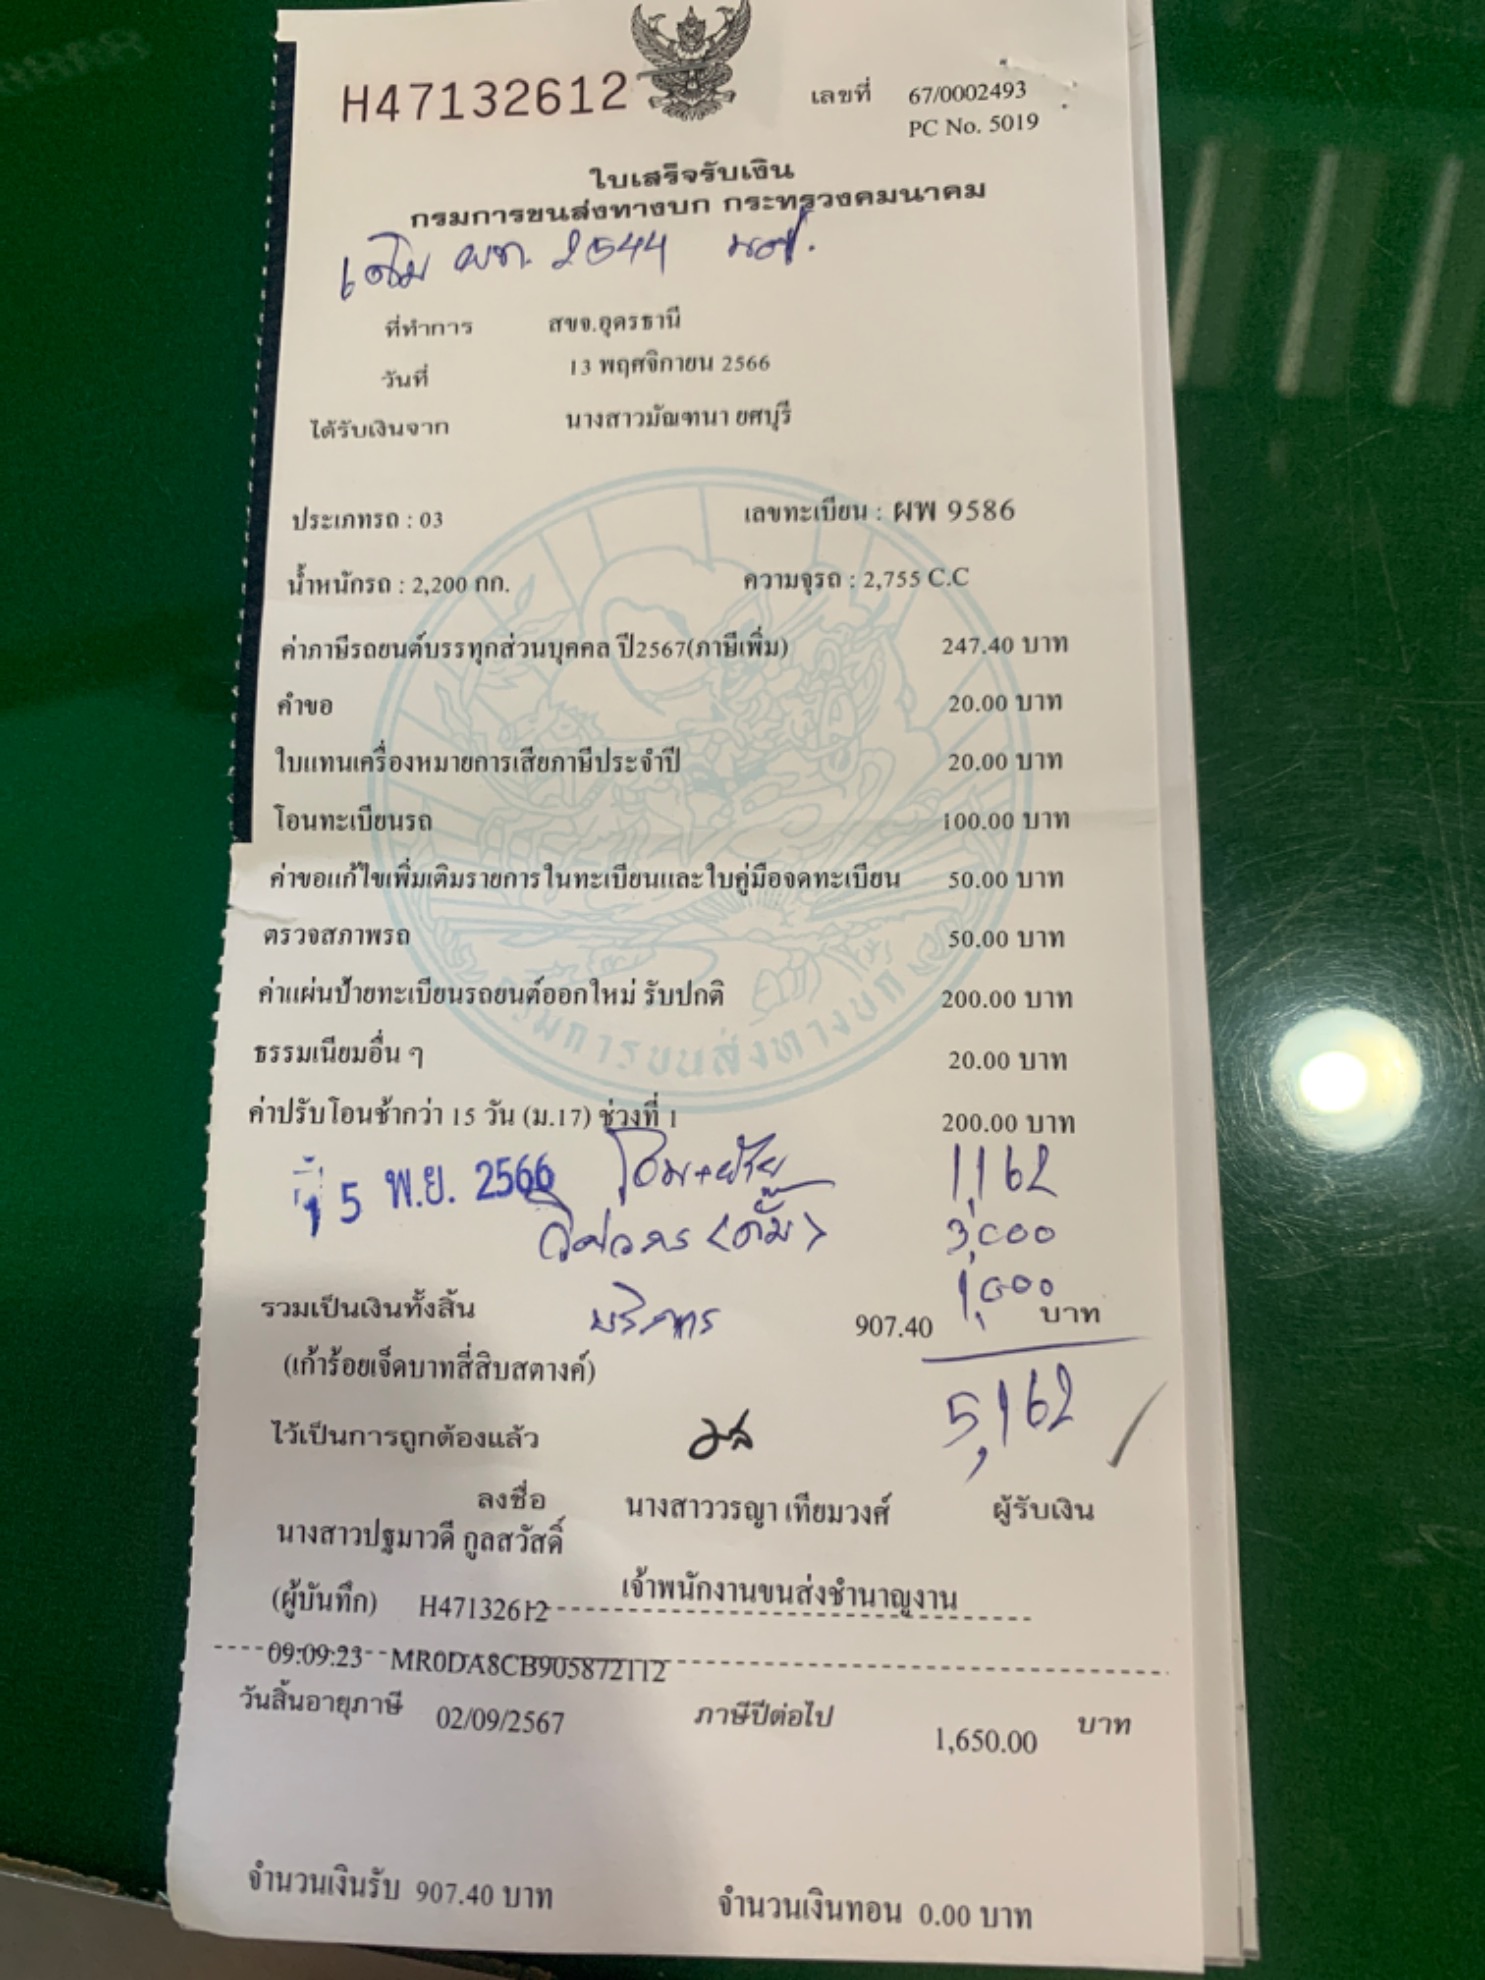 H47132612
เลขที่ 67/0002493
PC No. 5019
ใบเสร็จรับเงิน
กรมการขนส่งทางบก กระทรวงคมนาคม
เดิม ผท. 2544
ที่ทำการ สขจ.อุดรธานี
วันที่ 13 พฤศจิกายน 2566
ได้รับเงินจาก นางสาวมัณฑนา ยศบุรี
ประเภทรถ : 03 เลขทะเบียน : ผพ 9586
น้ำหนักรถ : 2,200 กก. ความจุรถ : 2,755 C.C
ค่าภาษีรถยนต์บรรทุกส่วนบุคคล ปี2567(ภาษีเพิ่ม) 247.40 บาท
คำขอ 20.00 บาท
ใบแทนเครื่องหมายการเสียภาษีประจำปี 20.00 บาท
โอนทะเบียนรถ 100.00 บาท
ค่าขอแก้ไขเพิ่มเติมรายการในทะเบียนและใบคู่มือจดทะเบียน 50.00 บาท
ตรวจสภาพรถ 50.00 บาท
ค่าแผ่นป้ายทะเบียนรถยนต์ออกใหม่ รับปกติ 200.00 บาท
ธรรมเนียมอื่น ๆ 20.00 บาท
กรมการขนส่งทางบก
ค่าปรับโอนช้ากว่า 15 วัน (ม.17) ช่วงที่ 1 200.00 บาท
15 พ.ย. 2566 โอน+ย้าย 1,162
วิศวกร (ดั๊ม) 3,000
บริการ 1,000
รวมเป็นเงินทั้งสิ้น 907.40 บาท
(เก้าร้อยเจ็ดบาทสี่สิบสตางค์) 5,162
ไว้เป็นการถูกต้องแล้ว
ลงชื่อ นางสาววรญา เทียมวงศ์ ผู้รับเงิน
นางสาวปฐมาวดี กูลสวัสดิ์
(ผู้บันทึก) H47132612 เจ้าพนักงานขนส่งชำนาญงาน
09:09:23 MR0DA8CB905872112
วันสิ้นอายุภาษี 02/09/2567 ภาษีปีต่อไป 1,650.00 บาท
จำนวนเงินรับ 907.40 บาท จำนวนเงินทอน 0.00 บาท